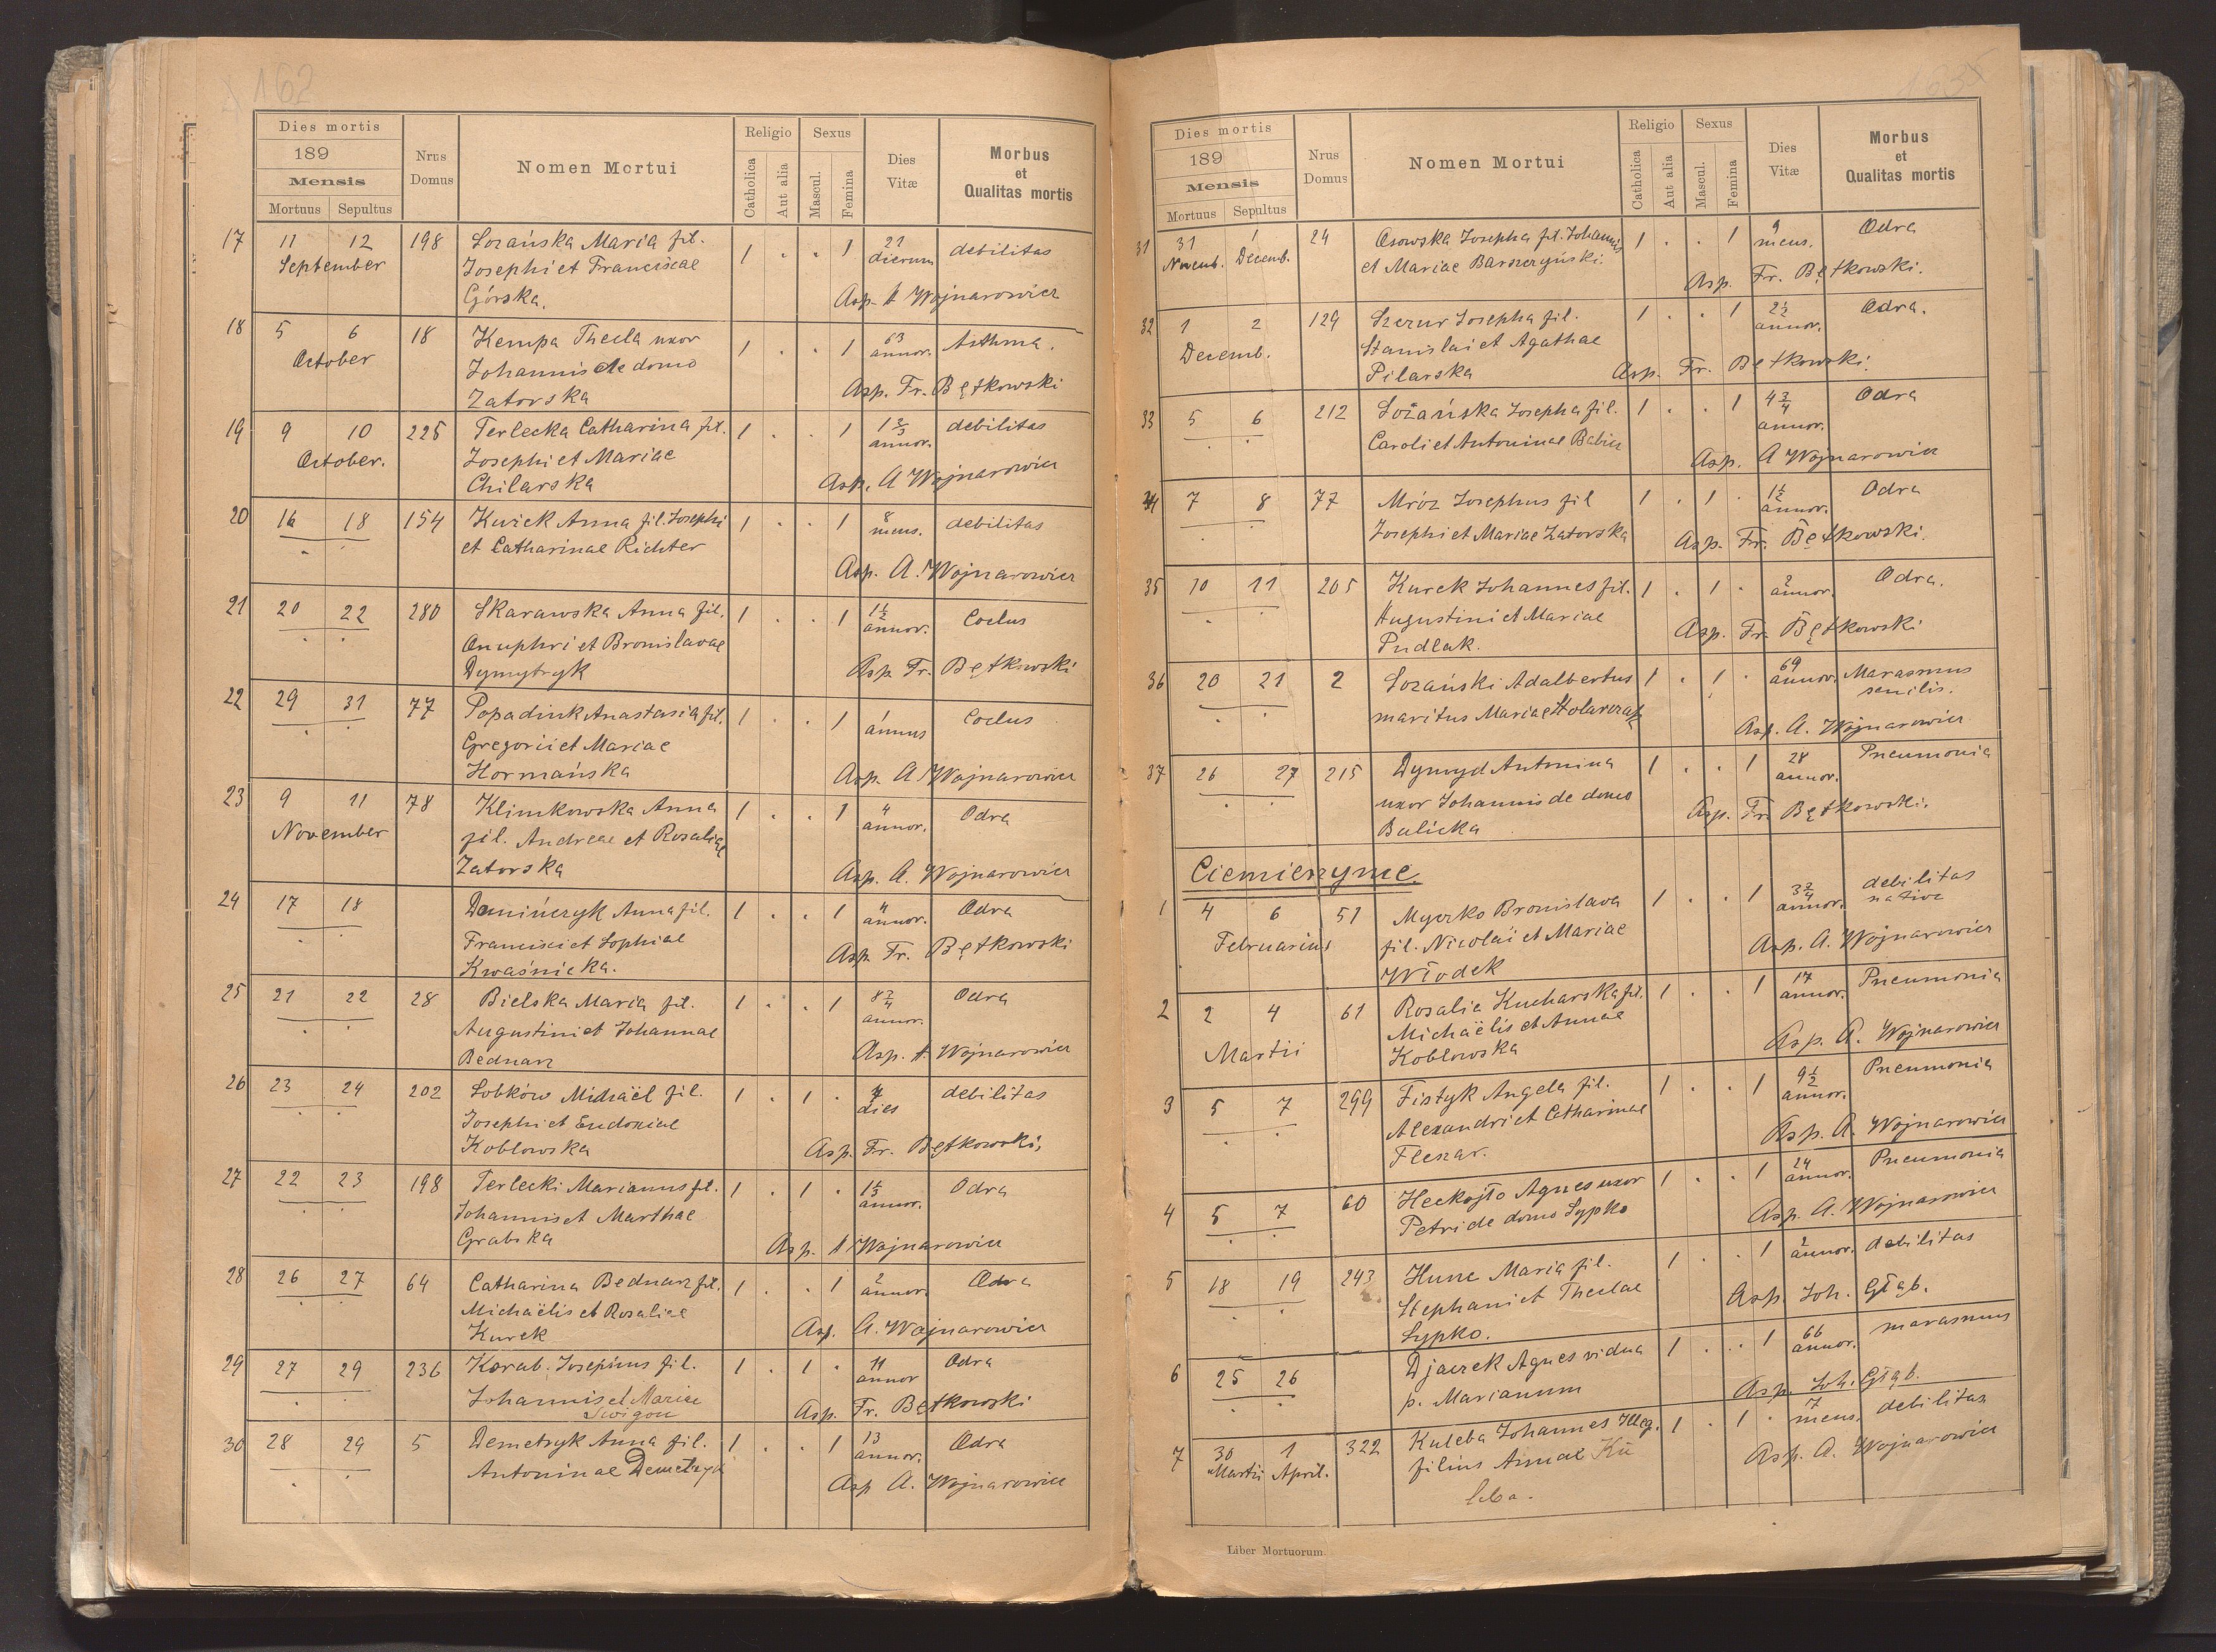 162
Dies mortis
189
Mensis
Mortuus Sepultus
Nrus Domus
Nomen Mortui
Religio
Catholica
Aut alia
Sexus
Mascul.
Femina
Dies Vitæ
Morbus et Qualitas mortis
17 11 12 198 Łozańska Maria fil. 1 . . 1 21 dierum debilitas
September Josephi et Franciscae
Górska. Asp. A Wojnarowicz
18 5 6 18 Kempa Thecla uxor 1 . . 1 63 annor. Asthma.
October Johannis de domo
Zatorska Asp. Fr. Bętkowski
19 9 10 225 Terlecka Catharina fil. 1 . . 1 1 2/3 annor. debilitas
October. Josephi et Mariae
Chilarska Asp. A Wojnarowicz
20 16 18 154 Kurek Anna fil. Josephi 1 . . 1 8 mens. debilitas
et Catharinae Richter
Asp. A. Wojnarowicz
21 20 22 280 Skarawska Anna fil. 1 . . 1 1 1/2 annor. Coclus
Onuphri et Bronislavae
Dymytryk Asp. Fr. Bętkowski
22 29 31 77 Popadiuk Anastasia fil. 1 . . 1 1 annus Coclus
Gregorii et Mariae
Hormańska Asp. A Wojnarowicz
23 9 11 78 Klimkowska Anna 1 . . 1 4 annor. Odra
November fil. Andreae et Rosaliae
Zatorska Asp. A. Wojnarowicz
24 17 18 Demińczyk Anna fil. 1 . . 1 4 annor. Odra
Francisci et Sophiae
Kwaśnicka. Asp. Fr. Bętkowski
25 21 22 28 Bielska Maria fil. 1 . . 1 8 3/4 annor. Odra
Augustini et Johannae
Bednarz Asp. A. Wojnarowicz
26 23 24 202 Sobków Michaël fil. 1 . 1 . dies debilitas
Josephi et Eudoxiae
Koblowska Asp. Fr. Bętkowski,
27 22 23 198 Terlecki Marianus fil. 1 . 1 . 1 1/3 annor. Odra
Johannis et Marthae
Grabska Asp. A Wojnarowicz
28 26 27 64 Catharina Bednarz fil. 1 . . 1 2 annor. Odra
Michaëlis et Rosaliae
Kurek Asp. A. Wojnarowicz
29 27 29 236 Korab. Josephus fil. 1 . 1 . 11 annor Odra
Johannis et Mariae
Świgoń Asp. Fr. Bętkowski
30 28 29 5 Demetryk Anna fil. 1 . . 1 13 annor. Odra
Antoninae Demetryk
Asp A. Wojnarowicz
Dies mortis
189
Mensis
Mortuus Sepultus
Nrus Domus
Nomen Mortui
Religio
Catholica
Aut alia
Sexus
Mascul.
Femina
Dies Vitæ
Morbus et Qualitas mortis
31 31 1 24 Osowska Josepha fil. Johannis 1 . . 1 9 mens. Odra
Novemb. Decemb. et Mariae Barszczyński.
Asp. Fr. Bętkowski.
32 1 2 129 Szczur Josepha fil. 1 . . 1 2 1/2 annor. Odra.
Decemb. Stanislai et Agathae
Pilarska Asp. Fr. Bętkowski.
33 5 6 212 Łozańska Josepha fil. 1 . . 1 4 3/4 annor. Odra
Caroli et Antoninae Babicz
Asp. A Wojnarowicz
34 7 8 77 Mróz Josephus fil 1 . 1 . 1 1/2 annor. Odra
Josephi et Mariae Zatorska
Asp. Fr. Bętkowski.
35 10 11 205 Kurek Johannes fil. 1 . 1 . 2 annor. Odra.
Augustini et Mariae
Pudlak. Asp. Fr. Bętkowski
36 20 21 2 Łozański Adalbertus 1 . 1 . 69 annor. Marasmus senilis.
maritus Mariae Stolarczyk
Asp. A. Wojnarowicz
37 26 27 215 Dymyd Antonina 1 . . 1 28 annor. Pneumonia
uxor Johannis de domo
Bulicka Asp. Fr. Bętkowski.
Ciemierzyńce
1 4 6 51 Myczko Bronislava 1 . . 1 3 3/4 annor. debilitas nativa
Februarius fil. Nicolaï et Mariae
Włodek Asp. A. Wojnarowicz
2 2 4 61 Rosalia Kucharska fil. 1 . . 1 17 annor. Pneumonia
Martii Michaëlis et Annae
Koblowska Asp. A. Wojnarowicz
3 5 7 299 Fistyk Angela fil. 1 . . 1 9 1/2 annor. Pneumonia
Alexandri et Catharinae
Fleszar. Asp. A. Wojnarowicz
4 5 7 60 Heckajło Agnes uxor 1 . . 1 24 annor. Pneumonia
Petri de domo Sypko
Asp. A. Wojnarowicz
5 18 19 243 Hunc Maria fil. 1 . . 1 2 annor. debilitas
Stephani et Theclae
Sypko. Asp. Joh. Głąb.
6 25 26 Djaczek Agnes vidua 1 . . 1 66 annor. marasmus
p. Marianum Asp. Joh. Głąb.
7 30 1 322 Kuleba Johannes Illeg. 1 . 1 . 7 mens. debilitas
Martii April. filius Annae Ku
leba. Asp. A. Wojnarowicz
Liber Mortuorum